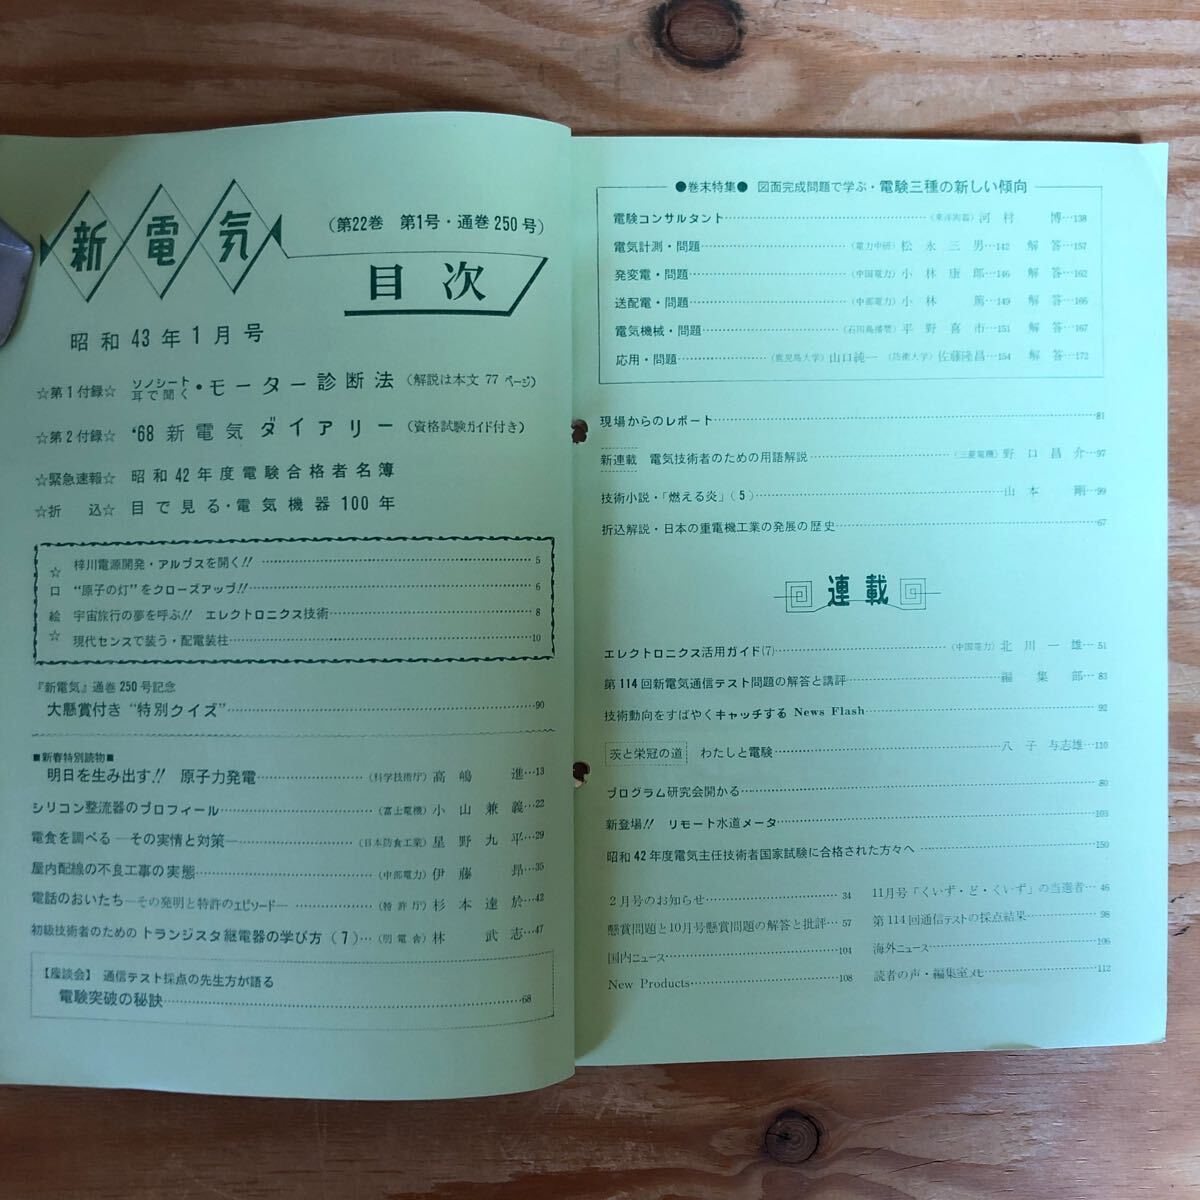 新電気
(第22巻 第1号・通巻250号)
目次
昭和43年1月号
☆第1付録☆ ソノシート 耳で聞く・モーター診断法 (解説は本文77ページ)
☆第2付録☆ '68 新電気ダイアリー (資格試験ガイド付き)
☆緊急速報☆ 昭和42年度電験合格者名簿
☆折込☆ 目で見る・電気機器100年
☆口絵☆
梓川電源開発・アルプスを開く!!…5
“原子の灯”をクローズアップ!!…6
宇宙旅行の夢を呼ぶ!! エレクトロニクス技術…8
現代センスで装う・配電装柱…10
『新電気』通巻250号記念
大懸賞付き“特別クイズ”…90
■新春特別読物■
明日を生み出す!! 原子力発電…(科学技術庁) 高嶋 進…13
シリコン整流器のプロフィール…(富士電機) 小山兼義…22
電食を調べる—その実情と対策—…(日本防食工業) 星野九平…29
屋内配線の不良工事の実態…(中部電力) 伊藤 昂…35
電話のおいたち—その発明と特許のエピソード—…(特許庁) 杉本達於…42
初級技術者のための トランジスタ継電器の学び方(7)…(明電舎) 林 武志…47
【座談会】 通信テスト採点の先生方が語る
電験突破の秘訣…68
●巻末特集● 図面完成問題で学ぶ・電験三種の新しい傾向
電験コンサルタント…(東洋陶器) 河村 博…138
電気計測・問題…(電力中研) 松永三男…142 解答…157
発変電・問題…(中国電力) 小林康郎…146 解答…162
送配電・問題…(中部電力) 小林 篤…149 解答…166
電気機械・問題…(石川島播磨) 平野喜市…151 解答…167
応用・問題…(鹿児島大学) 山口純一 (防衛大学) 佐藤隆昌…154 解答…172
現場からのレポート…81
新連載 電気技術者のための用語解説…(三菱電機) 野口昌介…97
技術小説・「燃える炎」(5)…山本 剛…99
折込解説・日本の重電機工業の発展の歴史…67
連載
エレクトロニクス活用ガイド(7)…(中国電力) 北川一雄…51
第114回新電気通信テスト問題の解答と講評…編集部…83
技術動向をすばやくキャッチする News Flash…92
茨と栄冠の道 わたしと電験…八子与志雄…110
プログラム研究会開かる…80
新登場!! リモート水道メータ…103
昭和42年度電気主任技術者国家試験に合格された方々へ…150
2月号のお知らせ…34
懸賞問題と10月号懸賞問題の解答と批評…57
国内ニュース…104
New Products…108
11月号「くいず・ど・くいず」の当選者…46
第114回通信テストの採点結果…98
海外ニュース…106
読者の声・編集室メモ…112